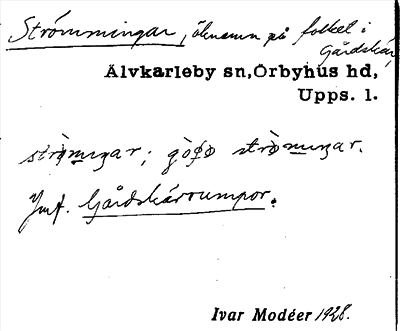 Strömmingar, öknamn på folket i
Gårdskär,
Älvkarleby sn, Örbyhus hd,
Upps. l.
strö̀miŋar; gò strö̀miŋar.
Jmf. Gårdskärrumpor.
Ivar Modéer 1928.